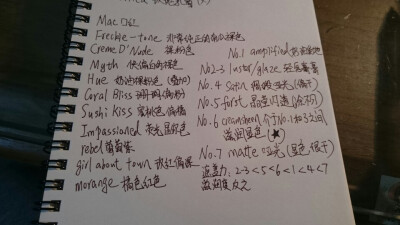 Mac 口红
Freckle-tone 非常纯正的裸色
Creme D' Nude 裸粉色
Myth 快偏白的裸色
Hue 奶油裸粉色
Coral Bliss 珊瑚(偏粉)
Sushi Kiss 蜜桃色偏橘
Impassioned 荧光
rebel 葡萄紫
girl about town 玫红偏深
morange 橘色红色
No.1 amplified
No2-3 lustor/glaze
No.4 Satin
No.5 frost
No.6 creamsheen 介于No.1和3之间
滋润显色 ★
No.7 matte 哑光(显色,很干)
遮盖力: 2-3<5<6<1<4<7
滋润度反之